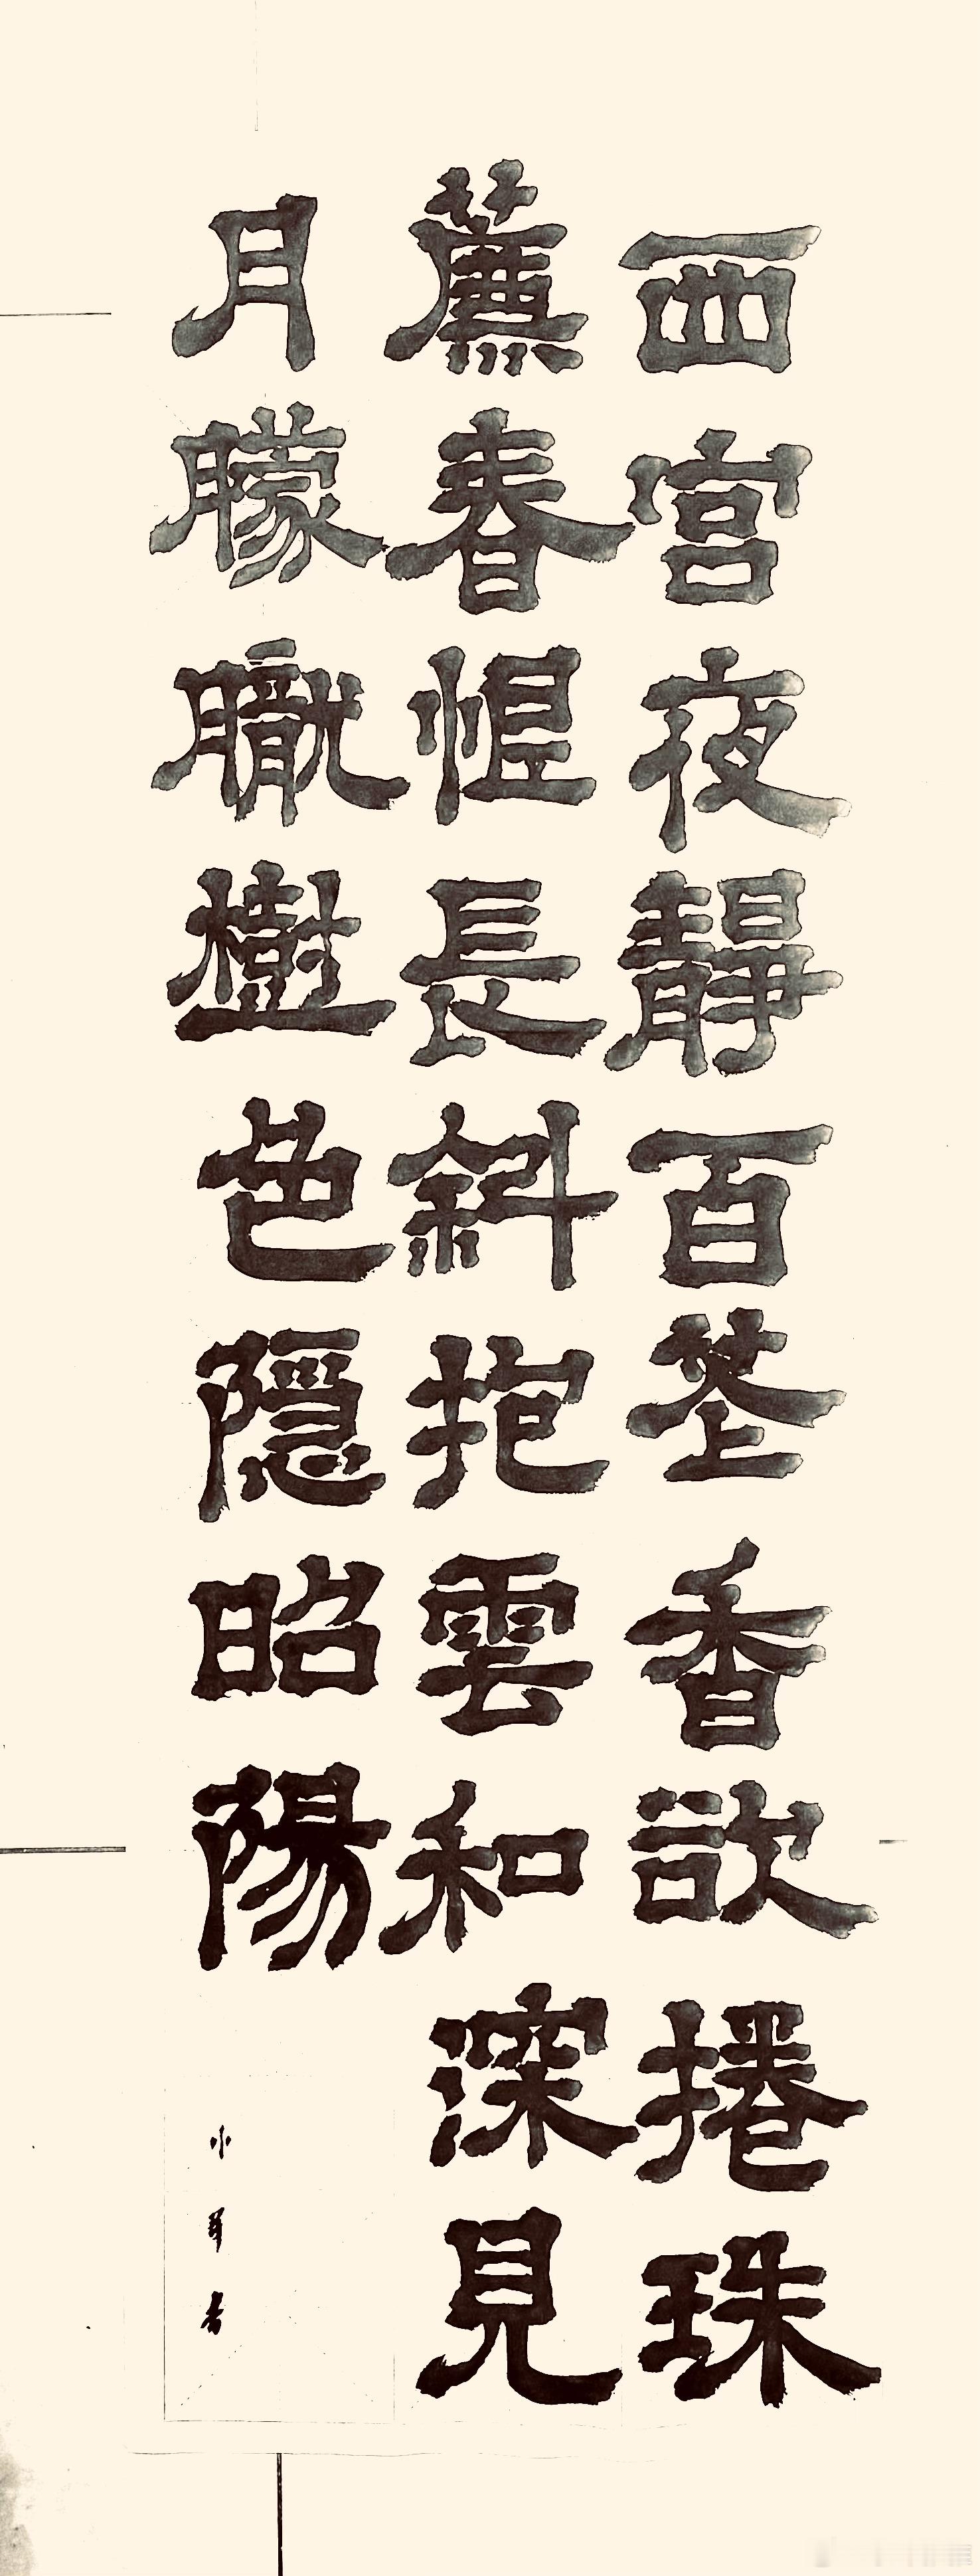 西宮夜靜百花香欲捲珠
簾春恨長斜抱雲和深見
月朦朧樹色隱昭陽
小 書